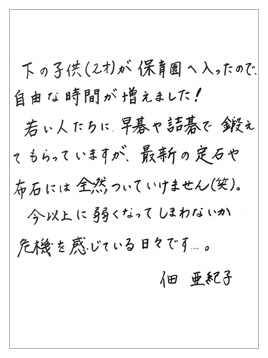 下の子供(2才)が保育園へ入ったので、
自由な時間が増えました!
若い人たちに、早碁や詰碁で鍛え
てもらっていますが、最新の定石や
布石には全然ついていけません(笑)。
今以上に弱くなってしまわないか
危機を感じている日々です…。
佃 亜紀子